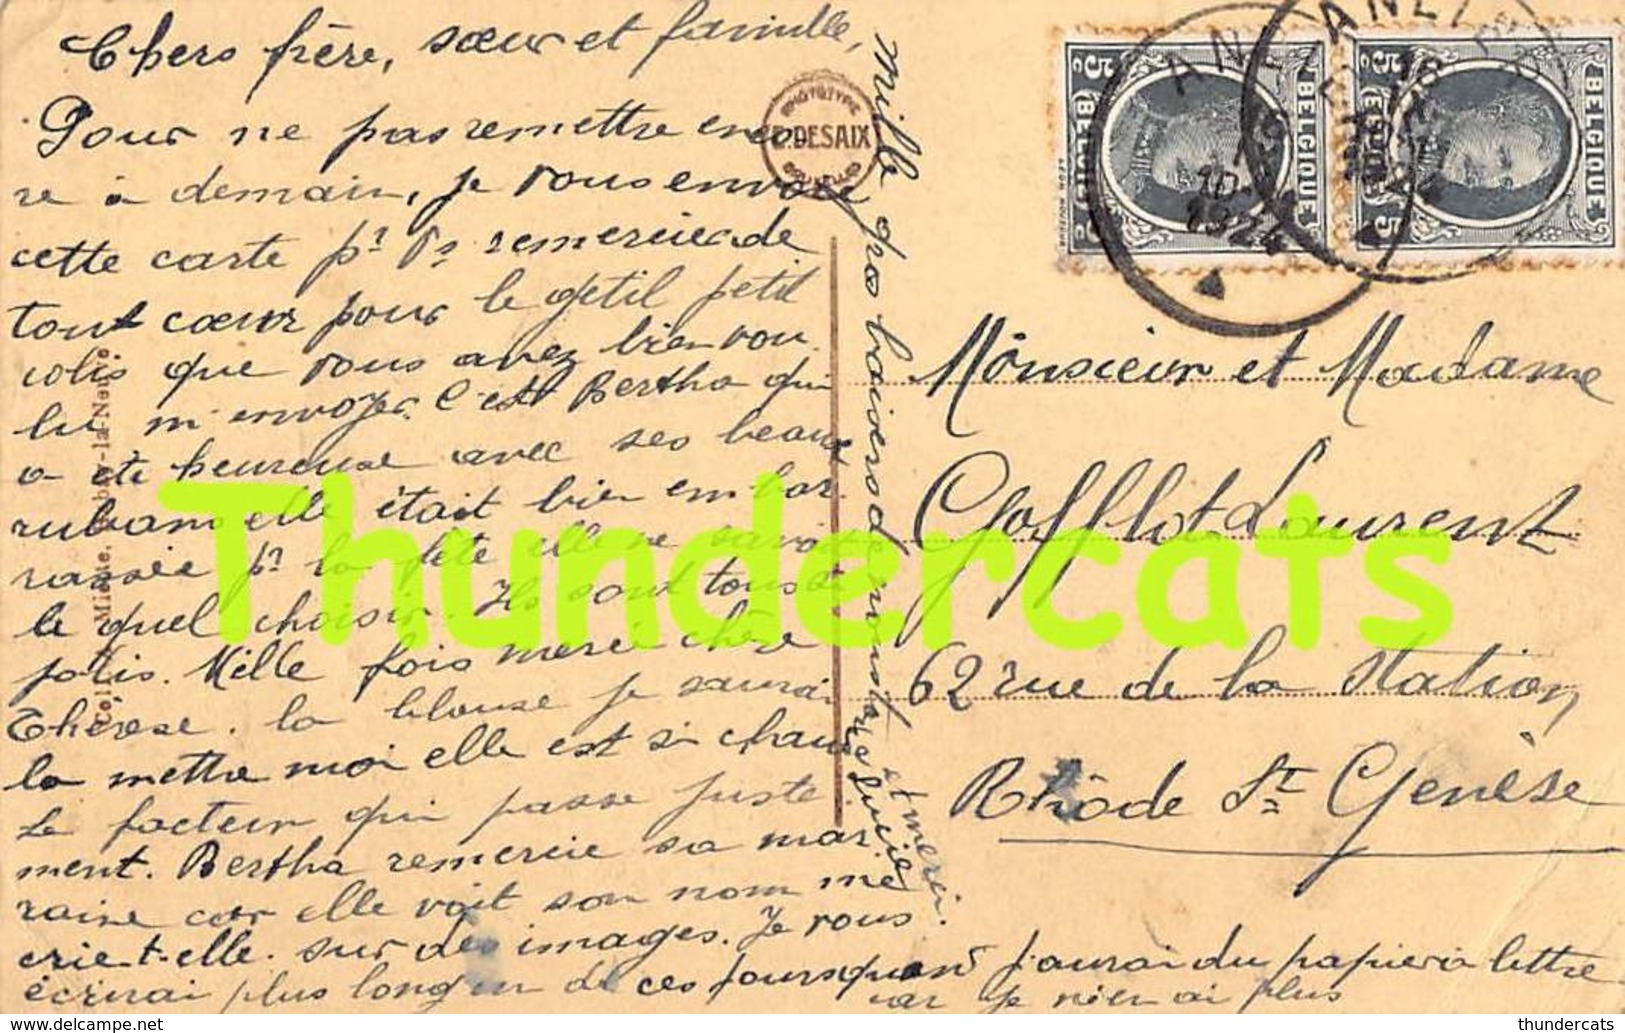 Chers frère, sœur et famille,
Pour ne pas remettre enco
re à demain, je vous envoie
cette carte pr vs remercier de
tout cœur pour le getil petit
colis que vous avez bien vou
lu m'envoyer c'est Bertha qui
a été heureuse avec ses beaux
rubans elle était bien embar
rassée pr la fête elle ne savait
le quel choisir. Ils sont tous
jolis. Mille fois merci chère
Thérèse. la blouse je saurai
la mettre moi elle est si chaude
Le facteur qui passe juste
ment. Bertha remercie sa mar
raine car elle voit son nom me
crie-t-elle. sur des images. Je vous
écrirai plus long un de ces jours quand j'aurai du papier à lettre
car je n'en ai plus
mille gros baisers de nous tous
et merci.
PHOTOTYPIE
E. DESAIX
BRUXELLES
BELGIQUE
5c
BELGIQUE
5c
1924
Monsieur et Madame
Gofflot Laurent
62 rue de la station
Rhôde St Genèse
Thundercats
www.delcampe.net
thundercats